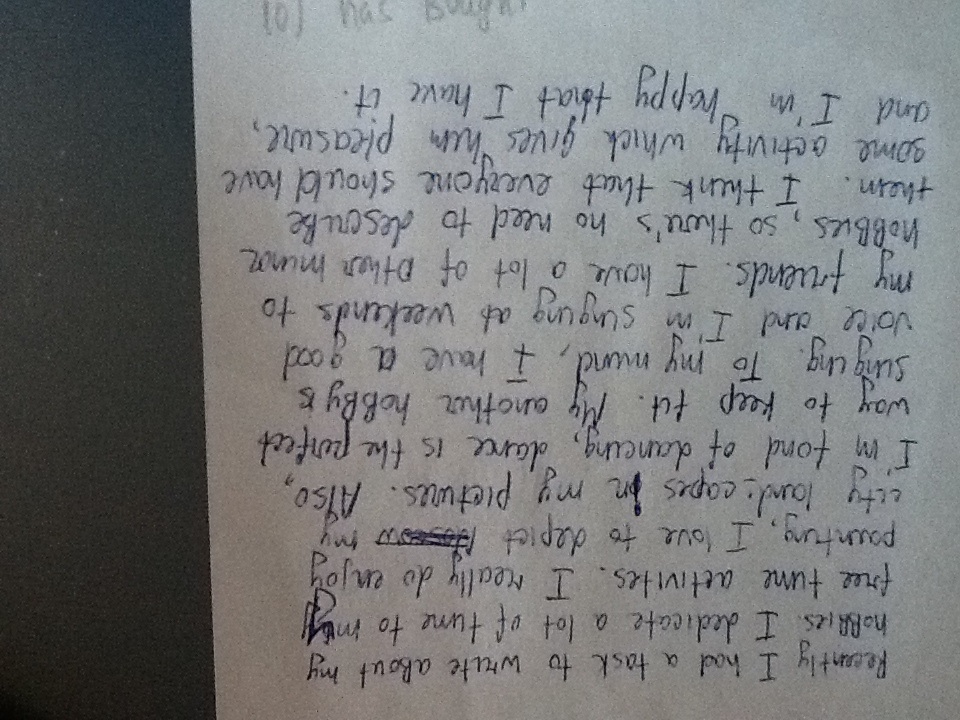 Recently I had a task to write about my
hobbies. I dedicate a lot of time to my
free time activites. I really do enjoy
painting, I love to depict my
city landscapes in my pictures. Also,
I'm fond of dancing, dance is the perfect
way to keep fit. My another hobby is
singing. To my mind, I have a good
voice and I'm singing at weekends to
my friends. I have a lot of other minor
hobbies, so there's no need to describe
them. I think that everyone should have
some activity which gives him pleasure,
and I'm happy that I have it.
10) has bought